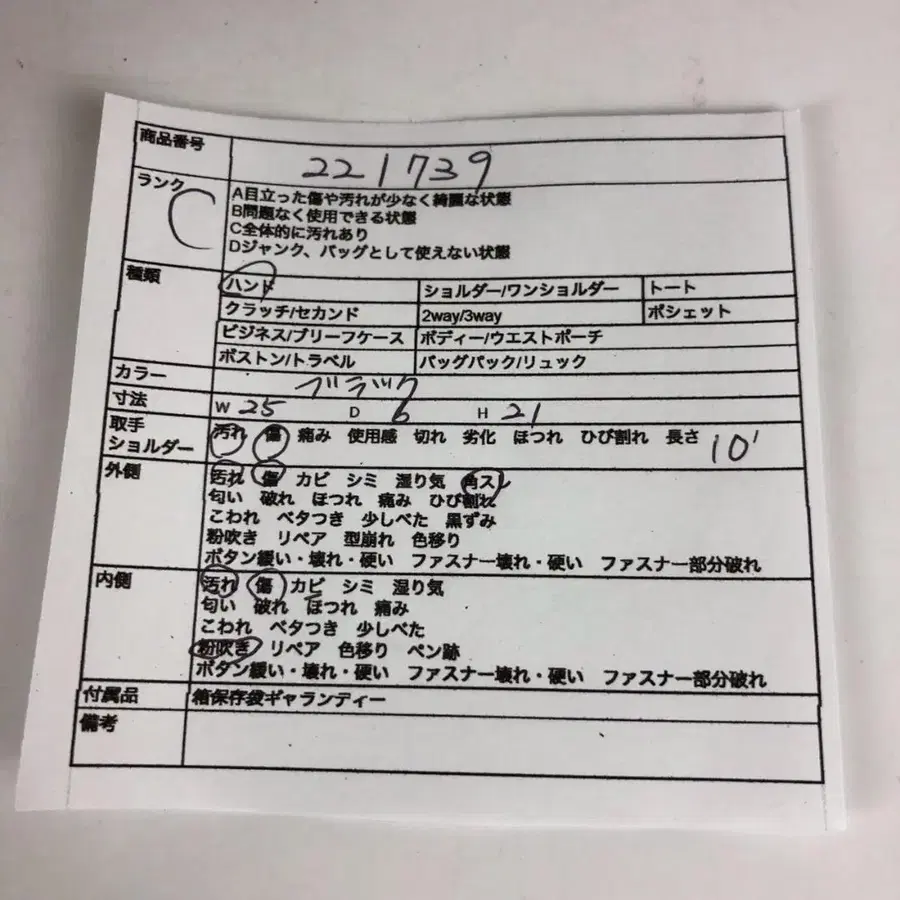 商品番号 221739
ランク C
A目立った傷や汚れが少なく綺麗な状態
B問題なく使用できる状態
C全体的に汚れあり
Dジャンク、バッグとして使えない状態
種類 ハンド ショルダー/ワンショルダー トート
クラッチ/セカンド 2way/3way ポシェット
ビジネス/ブリーフケース ボディー/ウエストポーチ
ボストン/トラベル バッグパック/リュック
カラー ブラック
寸法 W 25 D 6 H 21
取手 汚れ 傷 痛み 使用感 切れ 劣化 ほつれ ひび割れ 長さ 10
ショルダー
外側 汚れ 傷 カビ シミ 湿り気 角スレ
匂い 破れ ほつれ 痛み ひび割れ
こわれ ベタつき 少しべた 黒ずみ
粉吹き リペア 型崩れ 色移り
ボタン緩い・壊れ・硬い ファスナー壊れ・硬い ファスナー部分破れ
内側 汚れ 傷 カビ シミ 湿り気
匂い 破れ ほつれ 痛み
こわれ ベタつき 少しべた
粉吹き リペア 色移り ペン跡
ボタン緩い・壊れ・硬い ファスナー壊れ・硬い ファスナー部分破れ
付属品 箱保存袋ギャランディー
備考